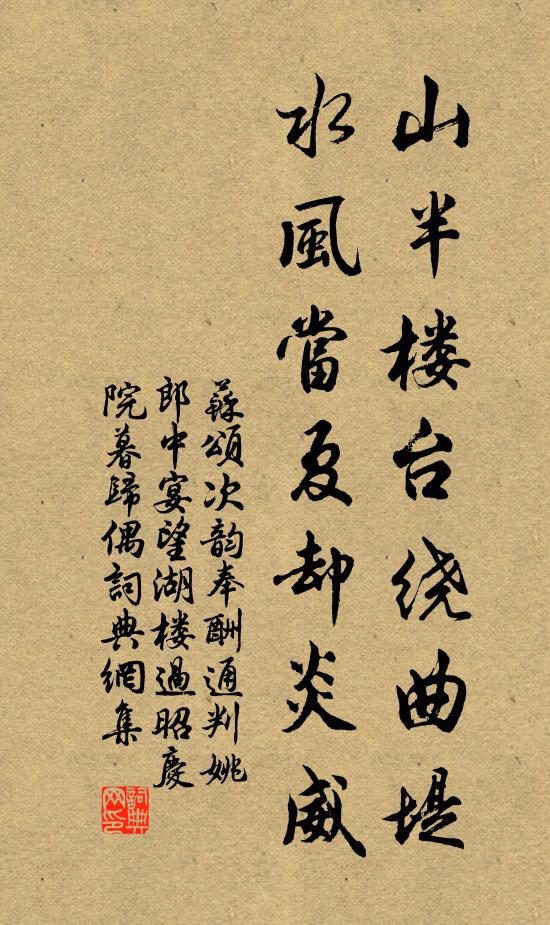 山半楼台绕曲堤
水風當夏却炎威
蘇頌次韵奉酬通判姚
郎中宴望湖楼過昭慶
院暮歸偶詞典網集
詞典
网印